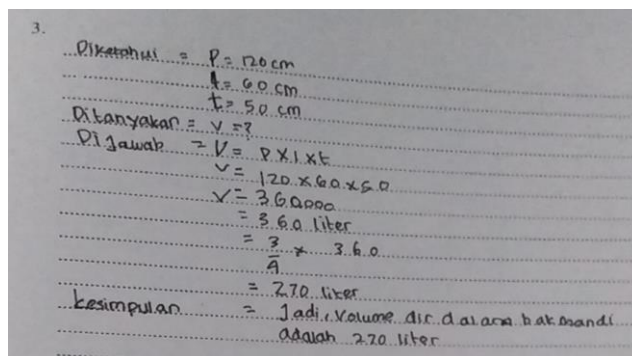 3.
Diketahui = P = 120 cm
l = 60 cm
t = 50 cm
Ditanyakan = V = ?
Dijawab = V = P x l x t
V = 120 x 60 x 50
V = 360000
= 360 liter
= 3/4 x 360
= 270 liter
kesimpulan = Jadi, volume air dalam bak mandi
adalah 270 liter